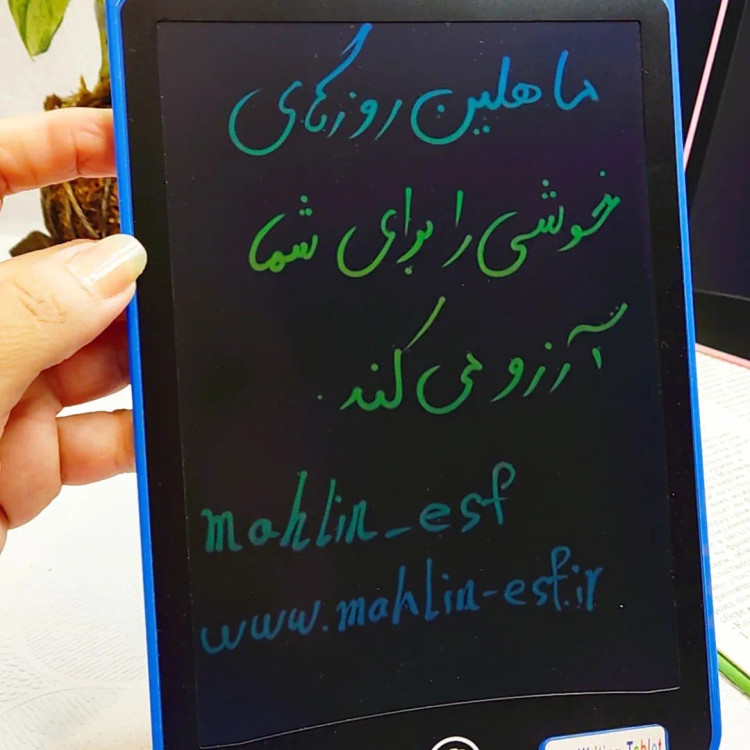 ماهلین روزهای
خوشی را برای شما
آرزو می کند.
mahlin_esf
www.mahlin-esf.ir
Writing Tablet